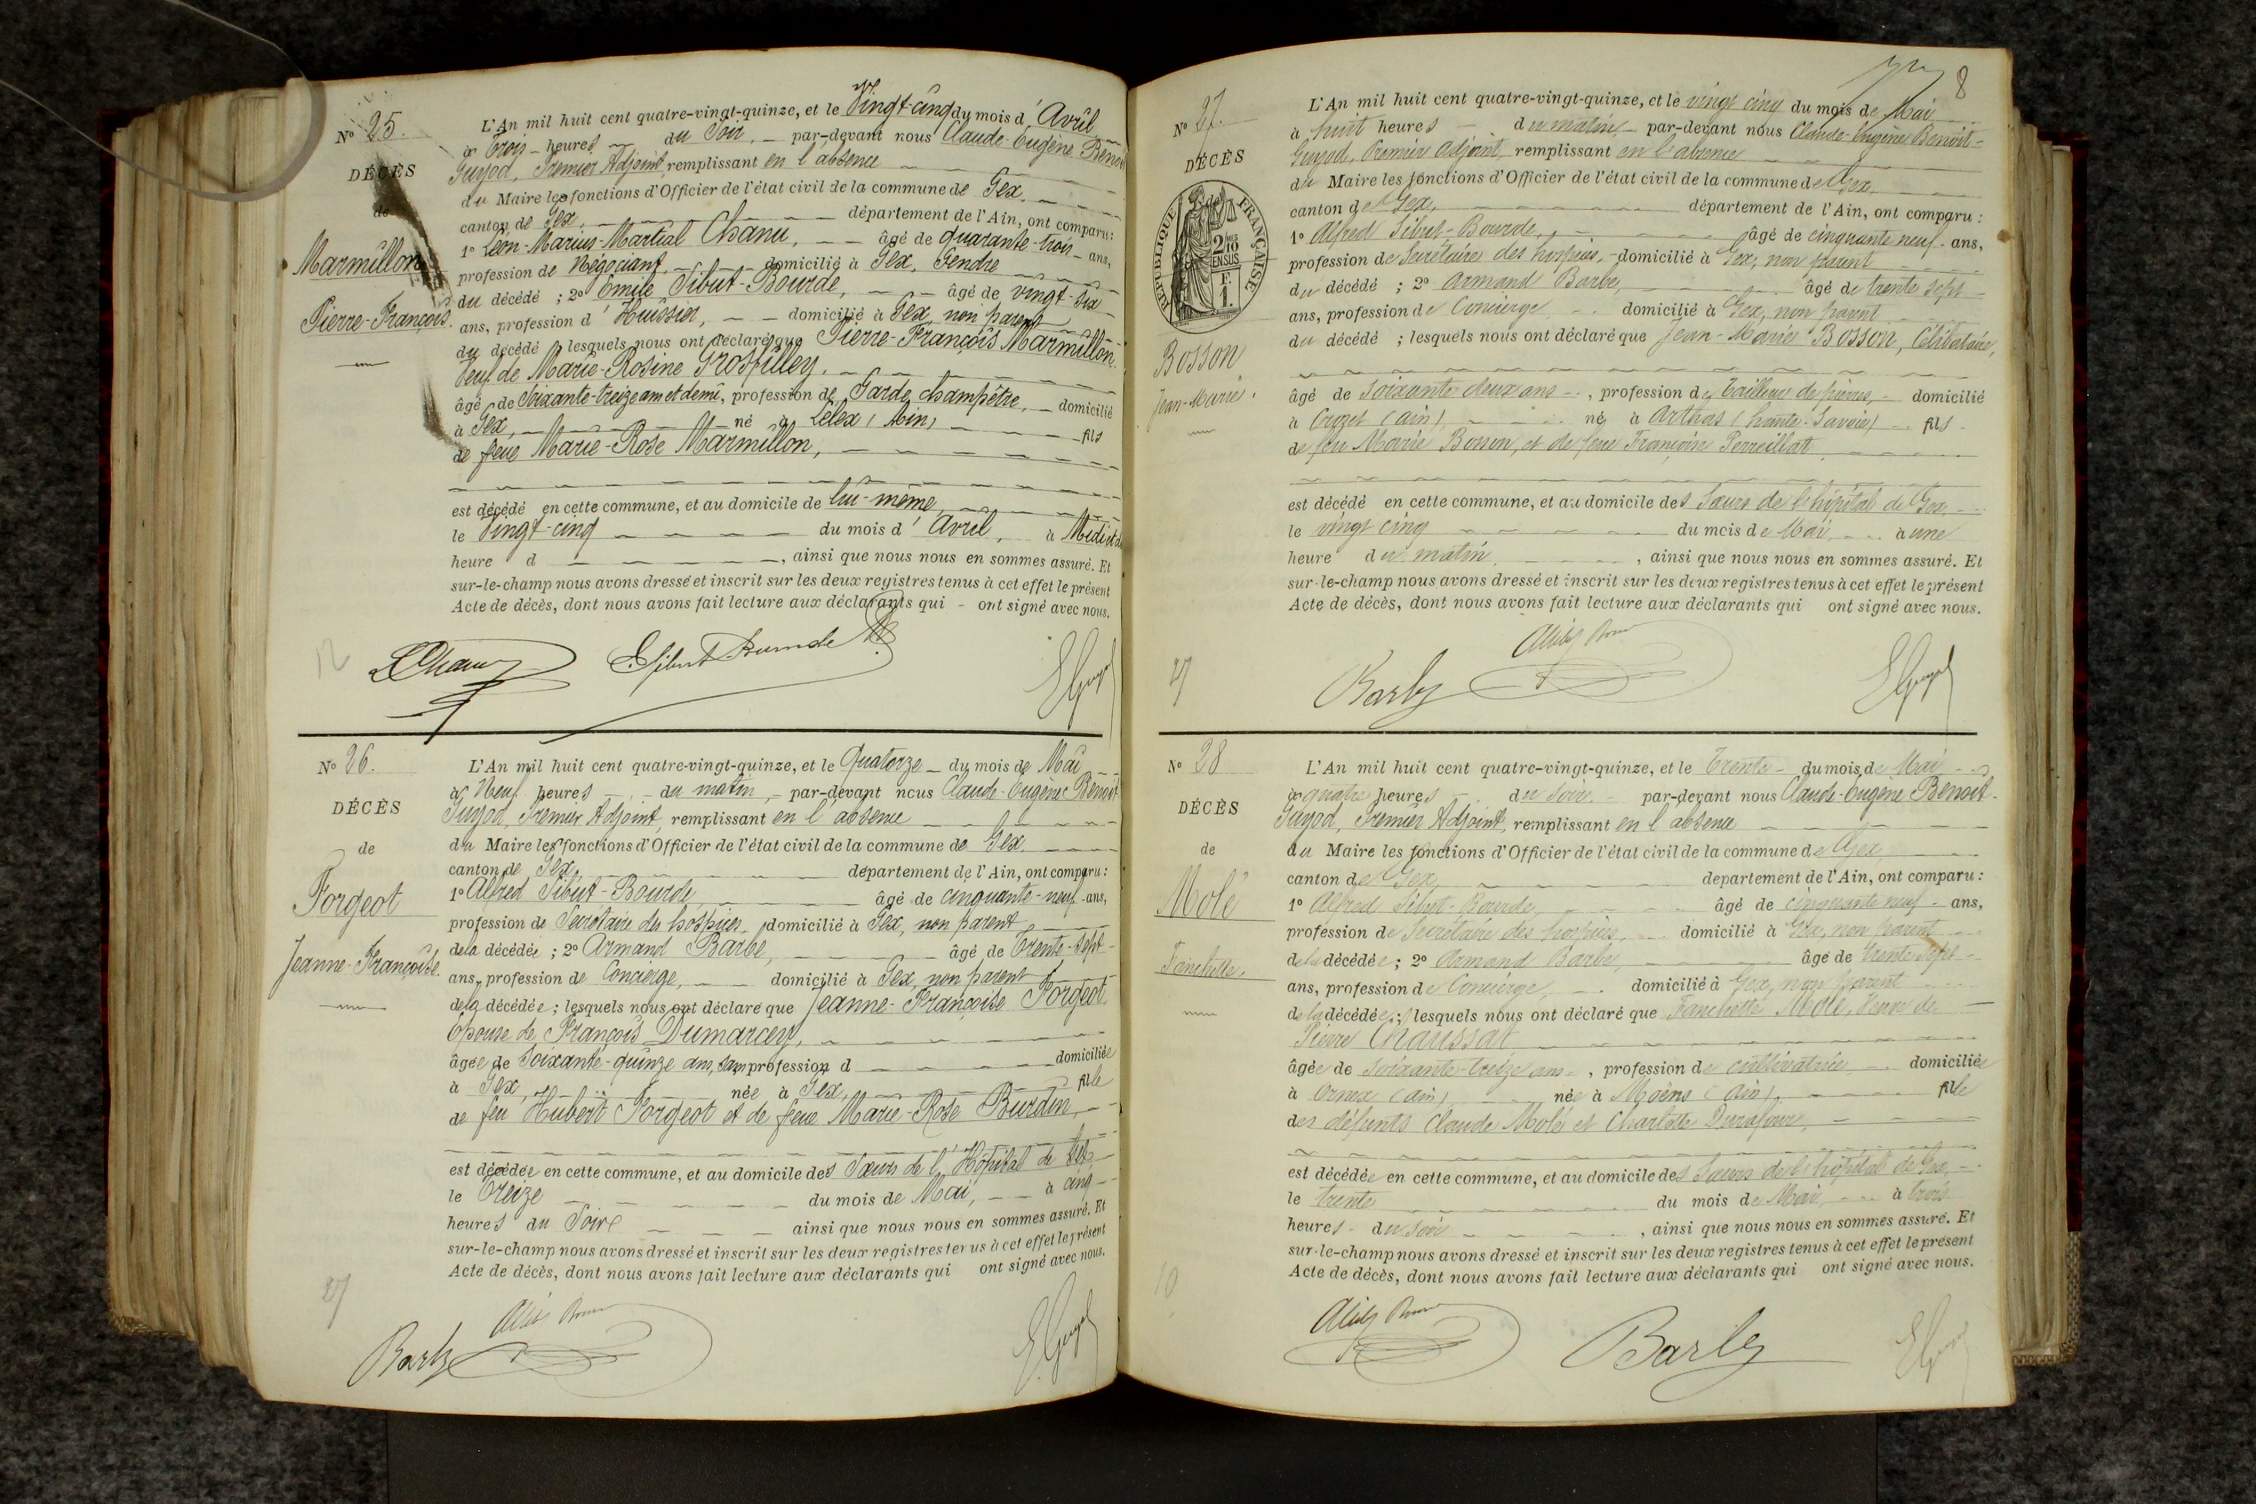 Nº 25.
DÉCÈS
de
Marmillon
Pierre-François.
L'An mil huit cent quatre-vingt-quinze, et le Vingt-cinq du mois d'Avril
à Trois heures du Soir, par-devant nous Claude-Eugène Benoit
Guyod, Premier Adjoint, remplissant en l'absence
du Maire les fonctions d'Officier de l'état civil de la commune de Gex.
canton de Gex, département de l'Ain, ont comparu:
1º Léon-Marius-Martial Chanu, âgé de quarante-trois ans,
profession de Négociant, domicilié à Gex, Gendre
du décédé ; 2º Emile Sibut-Bourde, âgé de vingt-six
ans, profession d'Huissier, domicilié à Gex, non parent
du décédé lesquels nous ont déclaré que Pierre-François Marmillon
Veuf de Marie-Rosine Grosfilley.
âgé de Soixante-treize ans et demi, profession de Garde champêtre, domicilié
à Gex, né à Lélex (Ain) fils
de feue Marie-Rose Marmillon,
est décédé en cette commune, et au domicile de lui-même
le Vingt-cinq du mois d'Avril, à Midi et
heure d , ainsi que nous nous en sommes assuré. Et
sur-le-champ nous avons dressé et inscrit sur les deux registres tenus à cet effet le présent
Acte de décès, dont nous avons fait lecture aux déclarants qui - ont signé avec nous.
LChanu E. Sibut-Bourde EGuyod
12
Nº 26.
DÉCÈS
de
Forgeot
Jeanne-Françoise.
L'An mil huit cent quatre-vingt-quinze, et le Quatorze du mois de Mai
à Neuf heures du matin, par-devant nous Claude-Eugène Benoit
Guyod, Premier Adjoint, remplissant en l'absence
du Maire les fonctions d'Officier de l'état civil de la commune de Gex.
canton de Gex, département de l'Ain, ont comparu:
1º Alfred Sibut-Bourde, âgé de cinquante-neuf ans,
profession de Secrétaire des hospices, domicilié à Gex, non parent
de la décédée; 2º Armand Barbe, âgé de Trente-sept
ans, profession de Concierge, domicilié à Gex, non parent
de la décédée; lesquels nous ont déclaré que Jeanne-Françoise Forgeot.
Epouse de François Dumarcey,
âgée de Soixante-quinze ans, sans profession d domiciliée
à Gex, née à Gex, fille
de feu Hubert Forgeot et de feue Marie-Rose Burdin,
est décédée en cette commune, et au domicile des Sœurs de l'Hôpital de Gex
le Treize du mois de Mai, à cinq
heures du Soir ainsi que nous nous en sommes assuré. Et
sur-le-champ nous avons dressé et inscrit sur les deux registres tenus à cet effet le présent
Acte de décès, dont nous avons fait lecture aux déclarants qui ont signé avec nous.
Barbe EGuyod
27
8
Nº 27.
DÉCÈS
RÉPUBLIQUE FRANÇAISE
2/10
EN SUS
F.
1.
Bosson
Jean-Marie.
L'An mil huit cent quatre-vingt-quinze, et le vingt cinq du mois de Mai
à huit heures du matin par-devant nous Claude-Eugène Benoit
Guyod, Premier Adjoint, remplissant en l'absence
du Maire les fonctions d'Officier de l'état civil de la commune de Gex
canton de Gex, département de l'Ain, ont comparu:
1º Alfred Sibut-Bourde, âgé de cinquante neuf ans,
profession de Secrétaire des hospices, domicilié à Gex, non parent
du décédé ; 2º Armand Barbe, âgé de trente sept
ans, profession de Concierge domicilié à Gex, non parent
du décédé ; lesquels nous ont déclaré que Jean-Marie Bosson, Célibataire,
âgé de Soixante-deux ans , profession de Tailleur de pierres, domicilié
à Crozet (ain), né à Arthas (haute-Savoie) fils
de feu Marie Bosson, et de feue Françoise Perreillat
est décédé en cette commune, et au domicile des Sœurs de l'hôpital de Gex
le vingt cinq du mois de Mai, à une
heure du matin , ainsi que nous nous en sommes assuré. Et
sur-le-champ nous avons dressé et inscrit sur les deux registres tenus à cet effet le présent
Acte de décès, dont nous avons fait lecture aux déclarants qui ont signé avec nous.
Barbe EGuyod
Nº 28
DÉCÈS
de
Molé
Fanchette.
L'An mil huit cent quatre-vingt-quinze, et le Trente du mois de Mai
à quatre heures du soir par-devant nous Claude-Eugène Benoit
Guyod, Premier Adjoint, remplissant en l'absence
du Maire les fonctions d'Officier de l'état civil de la commune de Gex
canton de Gex département de l'Ain, ont comparu:
1º Alfred Sibut-Bourde, âgé de cinquante neuf ans,
profession de Secrétaire des hospices, domicilié à Gex, non parent
de la décédée; 2º Armand Barbe, âgé de trente sept
ans, profession de Concierge, domicilié à Gex, non parent
de la décédée; lesquels nous ont déclaré que Fanchette Molé, Veuve de
Pierre Chaussat
âgée de soixante-treize ans , profession de cultivatrice domiciliée
à Ornex (ain), née à Moëns (ain), fille
des défunts Claude Molé et Charlotte Durafour,
est décédée en cette commune, et au domicile des Sœurs de l'hôpital de Gex,
le trente du mois de Mai à trois
heures du soir , ainsi que nous nous en sommes assuré. Et
sur-le-champ nous avons dressé et inscrit sur les deux registres tenus à cet effet le présent
Acte de décès, dont nous avons fait lecture aux déclarants qui ont signé avec nous.
Barbe EGuyod
10